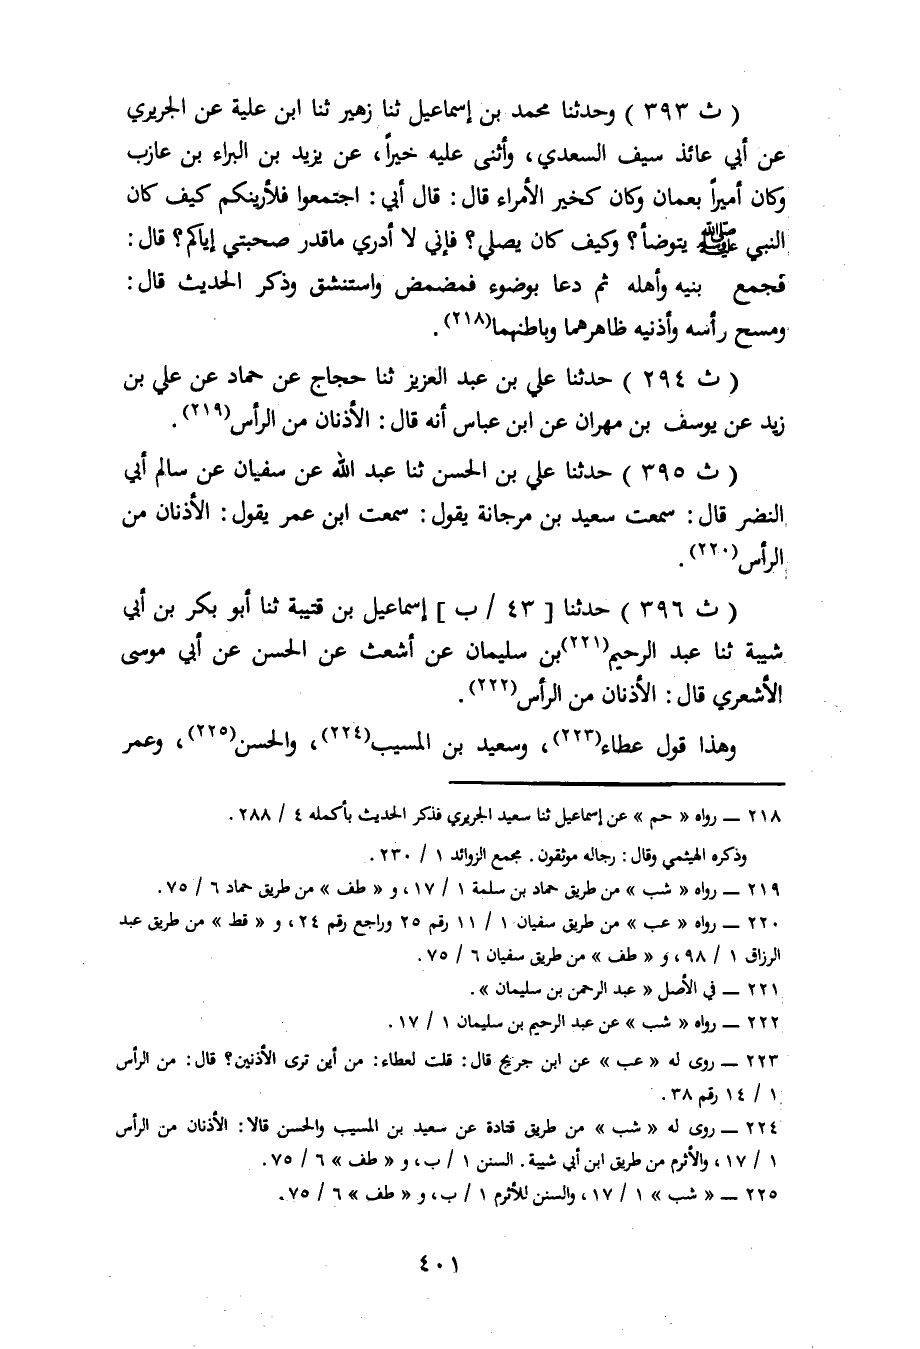 ( ث ٣٩٣ ) وحدثنا محمد بن إسماعيل ثنا زهير ثنا ابن علية عن الجريري
عن أبي عائذ سيف السعدي، وأثنى عليه خيراً، عن يزيد بن البراء بن عازب
وكان أميراً بعمان وكان كخير الأمراء قال : قال أبي : اجتمعوا فلأرينكم كيف كان
النبي ﷺ يتوضأ؟ وكيف كان يصلي؟ فإني لا أدري ماقدر صحبتي إياكم؟ قال :
فجمع بنيه وأهله ثم دعا بوضوء فمضمض واستنشق وذكر الحديث قال :
ومسح رأسه وأذنيه ظاهرهما وباطنهما(٢١٨).
( ث ٢٩٤ ) حدثنا علي بن عبد العزيز ثنا حجاج عن حماد عن علي بن
زيد عن يوسف بن مهران عن ابن عباس أنه قال : الأذنان من الرأس(٢١٩).
( ث ٣٩٥ ) حدثنا علي بن الحسن ثنا عبد الله عن سفيان عن سالم أبي
النضر قال : سمعت سعيد بن مرجانة يقول : سمعت ابن عمر يقول : الأذنان من
الرأس(٢٢٠).
( ث ٣٩٦ ) حدثنا [ ٤٣ / ب ] إسماعيل بن قتيبة ثنا أبو بكر بن أبي
شيبة ثنا عبد الرحيم(٢٢١)بن سليمان عن أشعث عن الحسن عن أبي موسى
الأشعري قال : الأذنان من الرأس(٢٢٢).
وهذا قول عطاء(٢٢٣)، وسعيد بن المسيب(٢٢٤)، والحسن(٢٢٥)، وعمر
٢١٨ — رواه « حم » عن إسماعيل ثنا سعيد الجريري فذكر الحديث بأكمله ٤ / ٢٨٨.
وذكره الهيثمي وقال : رجاله موثقون. مجمع الزوائد ١ / ٢٣٠.
٢١٩ — رواه « شب » من طريق حماد بن سلمة ١ / ١٧، و « طف » من طريق حماد ٦ / ٧٥.
٢٢٠ — رواه « عب » من طريق سفيان ١ / ١١ رقم ٢٥ وراجع رقم ٢٤، و « قط » من طريق عبد
الرزاق ١ / ٩٨، و « طف » من طريق سفيان ٦ / ٧٥.
٢٢١ — في الأصل « عبد الرحمن بن سليمان ».
٢٢٢ — رواه « شب » عن عبد الرحيم بن سليمان ١ / ١٧.
٢٢٣ — روى له « عب » عن ابن جريج قال : قلت لعطاء: من أين ترى الأذنين؟ قال : من الرأس
١ / ١٤ رقم ٣٨.
٢٢٤ — روى له « شب » من طريق قتادة عن سعيد بن المسيب والحسن قالا: الأذنان من الرأس
١ / ١٧، والأثرم من طريق ابن أبي شيبة. السنن ١ / ب، و « طف » ٦ / ٧٥.
٢٢٥ — « شب » ١ / ١٧، والسنن للأثرم ١ / ب، و « طف » ٦ / ٧٥.
٤٠١